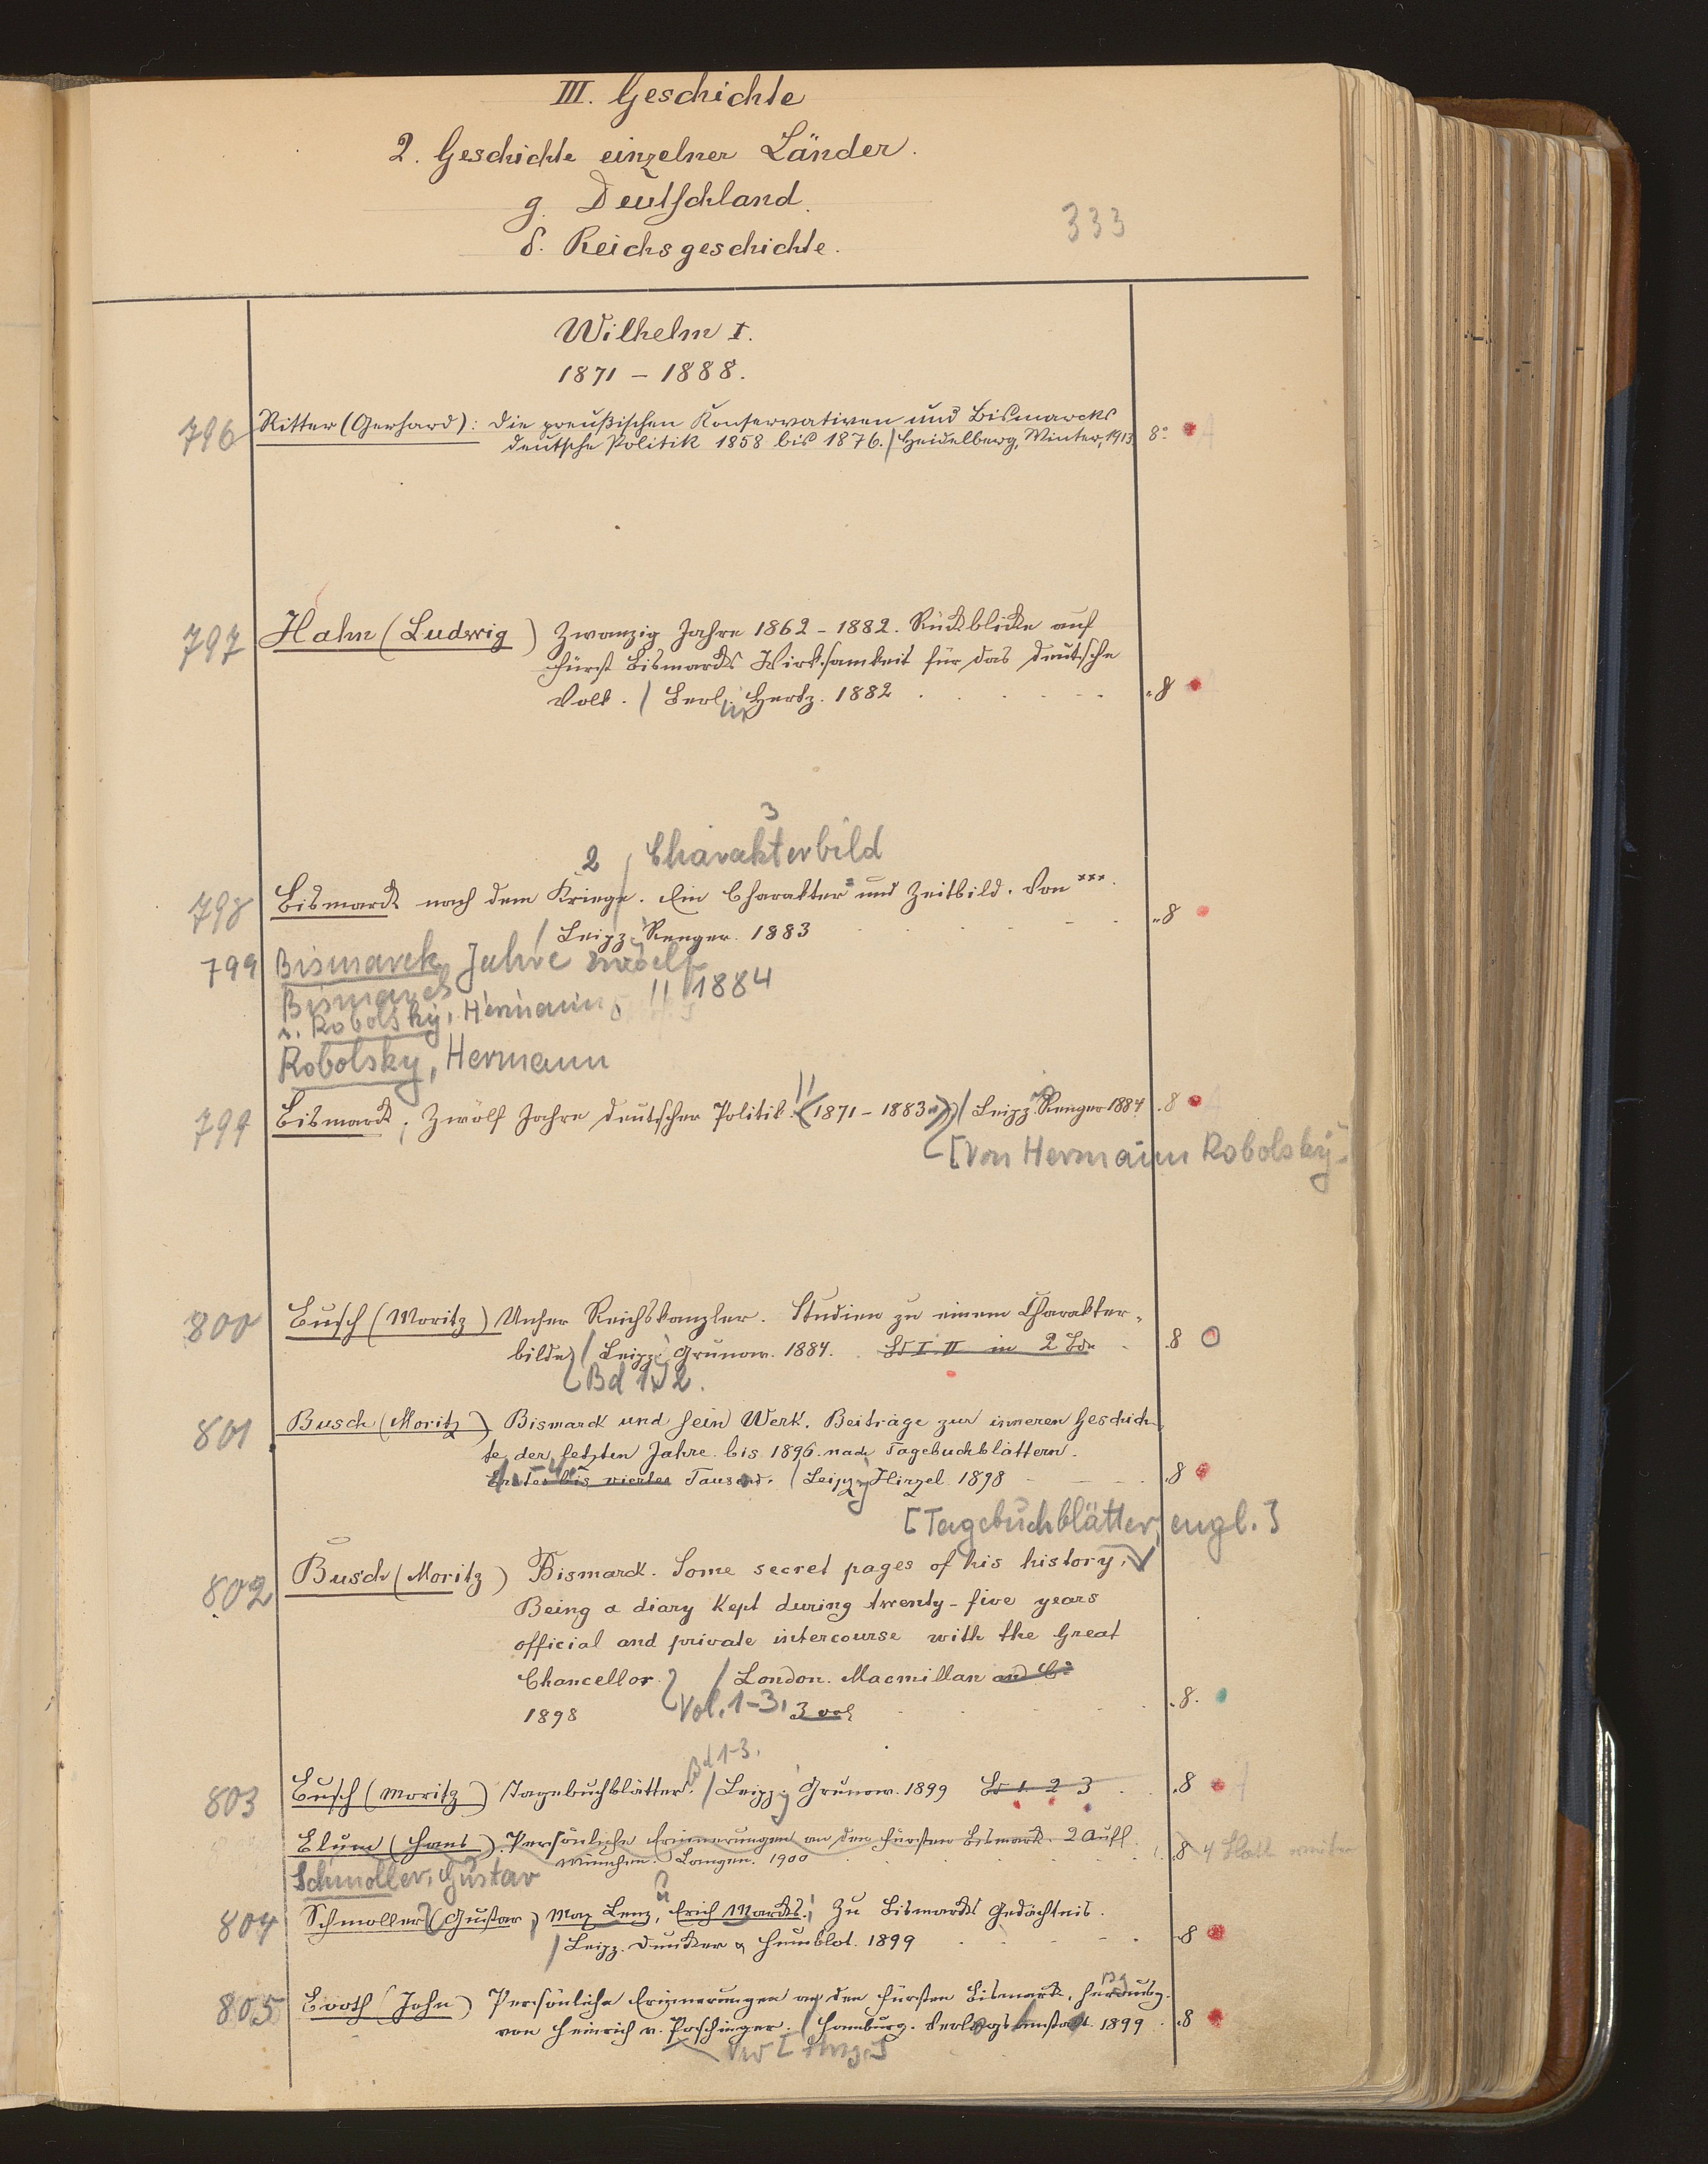 III. Geschichte
2. Geschichte einzelner Länder.
g. Deutschland.
δ. Reichsgeschichte.
333
Wilhelm I.
1871 – 1888.
796 Ritter (Gerhard): Die preußischen Konservativen und Bismarcks
deutsche Politik 1858 bis 1876. / Heidelberg, Winter, 1913 8°
797 Hahn (Ludwig) Zwanzig Jahre 1862 – 1882. Rückblicke auf
Fürst Bismarcks Wirksamkeit für das deutsche
Volk. / Berlin Hertz. 1882 . 8
3
2 / Charakterbild
798 Bismarck nach dem Kriege. Ein Charakter- und Zeitbild. Von ***.
/ Leipz. Renger. 1883 . 8
799 Bismarck Jahre zwoelf
// 1884
Bismarck
s. Robolsky, Hermann
Robolsky, Hermann
799 Bismarck; Zwölf Jahre deutscher Politik. (1871 – 1883.) / Leipz. Renger 1884 . 8
[Von Hermann Robolsky]
800 Busch (Moritz) Unser Reichskanzler. Studien zu einem Charakter-
bilde / Leipz. Grunow. 1884. Bd I. II in 2 Bdn . 8
Bd 1. 2.
801 Busch (Moritz) Bismarck und sein Werk. Beiträge zur inneren Geschich-
te der letzten Jahre bis 1896. nach Tagebuchblättern.
Erstes bis viertes Tausend. / Leipzig Hirzel. 1898 . 8
[Tagebuchblätter, engl.]
802 Busch (Moritz) Bismarck. Some secret pages of his history.
Being a diary kept during twenty-five years
official and private intercourse with the Great
Chancellor. / London. Macmillan and Co
1898 Vol. 1-3, 3 vol . 8.
Bd 1-3.
803 Busch (Moritz) Tagebuchblätter. / Leipz. Grunow. 1899 Bd 1. 2. 3 . 8
Blum (Hans). Persönliche Erinnerungen an den Fürsten Bismarck. 2 Aufl.
München. Langen. 1900 . 8 4 Blatt weiter
Schmoller, Gustav
804 Schmoller (Gustav), Max Lenz, Erich Marcks. Zu Bismarcks Gedächtnis.
/ Leipz. Duncker & Humblot. 1899 . 8
805 Booth (John) Persönliche Erinnerungen an den Fürsten Bismarck. Herausg.
von Heinrich v. Poschinger. / Hamburg. Verlagsanstalt. 1899 . 8